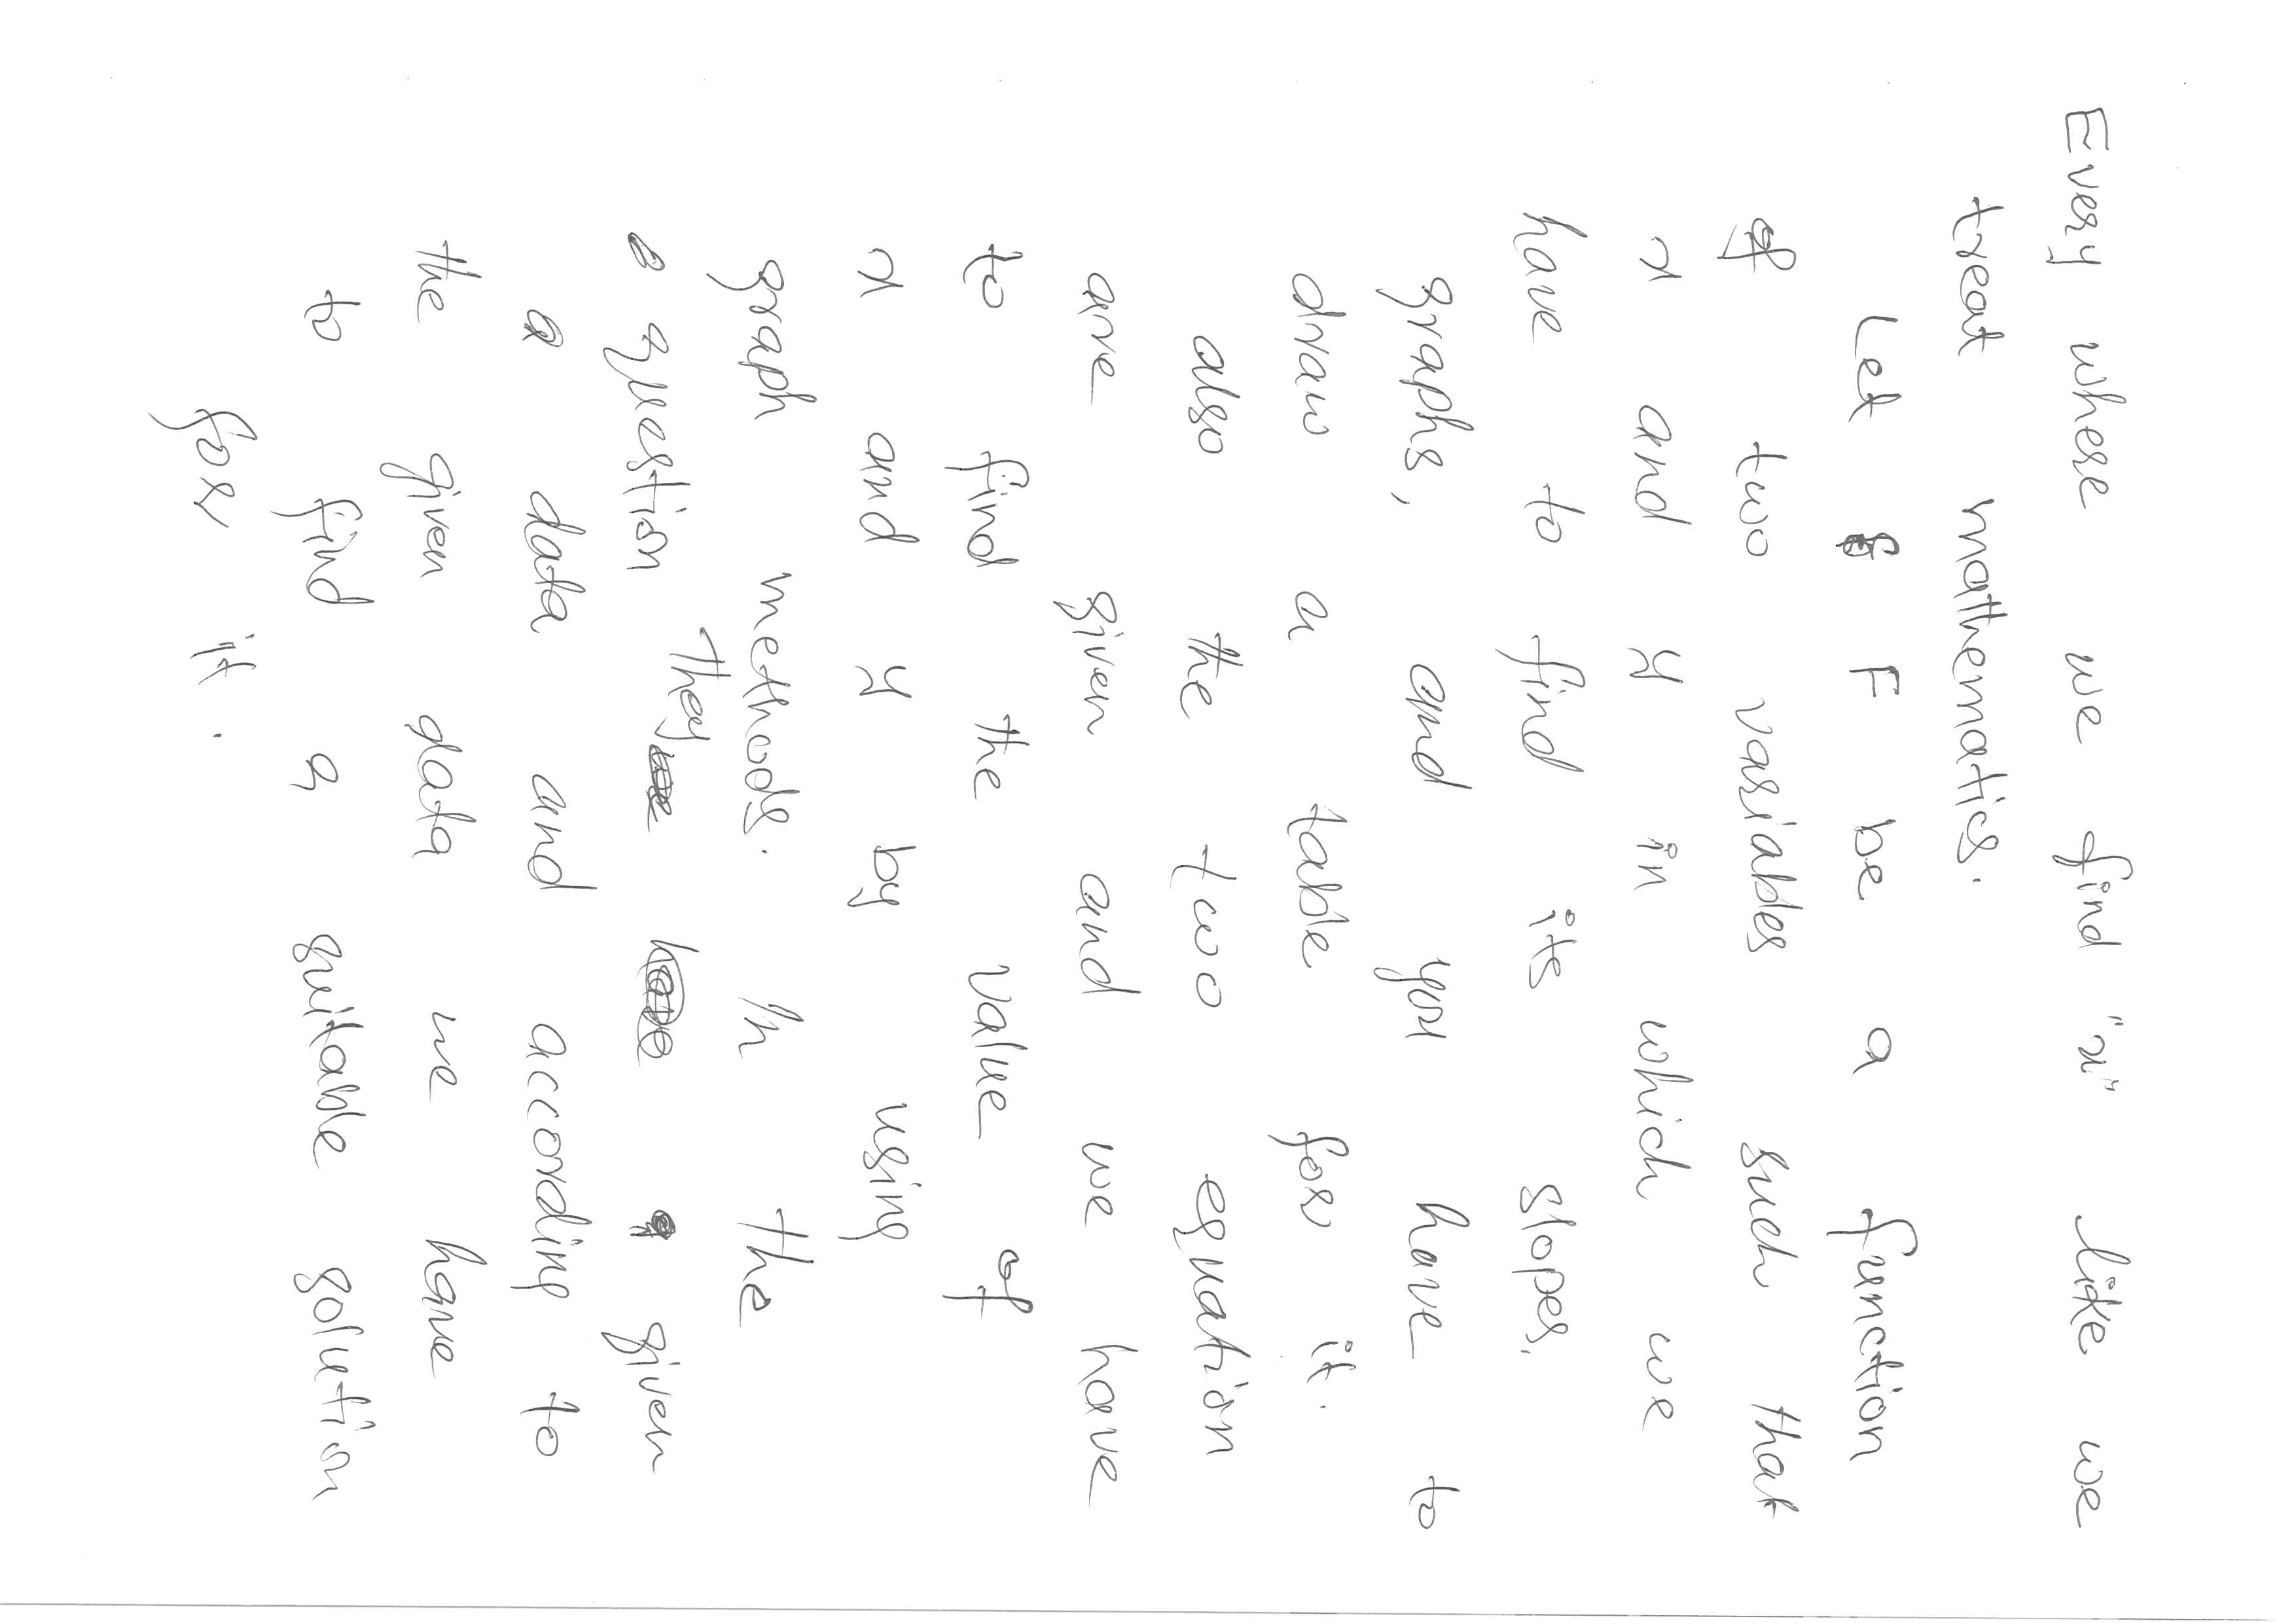 Every where we find "x" like we
treat mathematics.
Let F be a function
of two variables such that
x and y in which we
have to find its slopes,
graphs, and you have to
draw a table for it.
also the two equation
are given and we have
to find the value of
x and y by using
graph methods. In the
question They given
a data and according to
the given data we have
to find a suitable solution
for it.